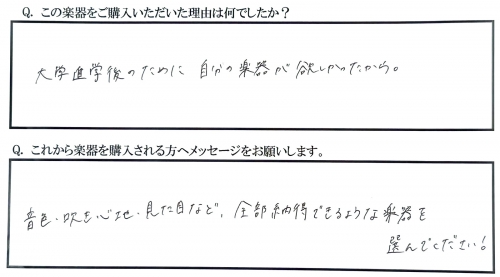 Q. この楽器をご購入いただいた理由は何でしたか？
大学進学後のために 自分の楽器が欲しかったから。
Q. これから楽器を購入される方へメッセージをお願いします。
音色・吹き心地・見た目など、全部納得できるような楽器を
選んでください！